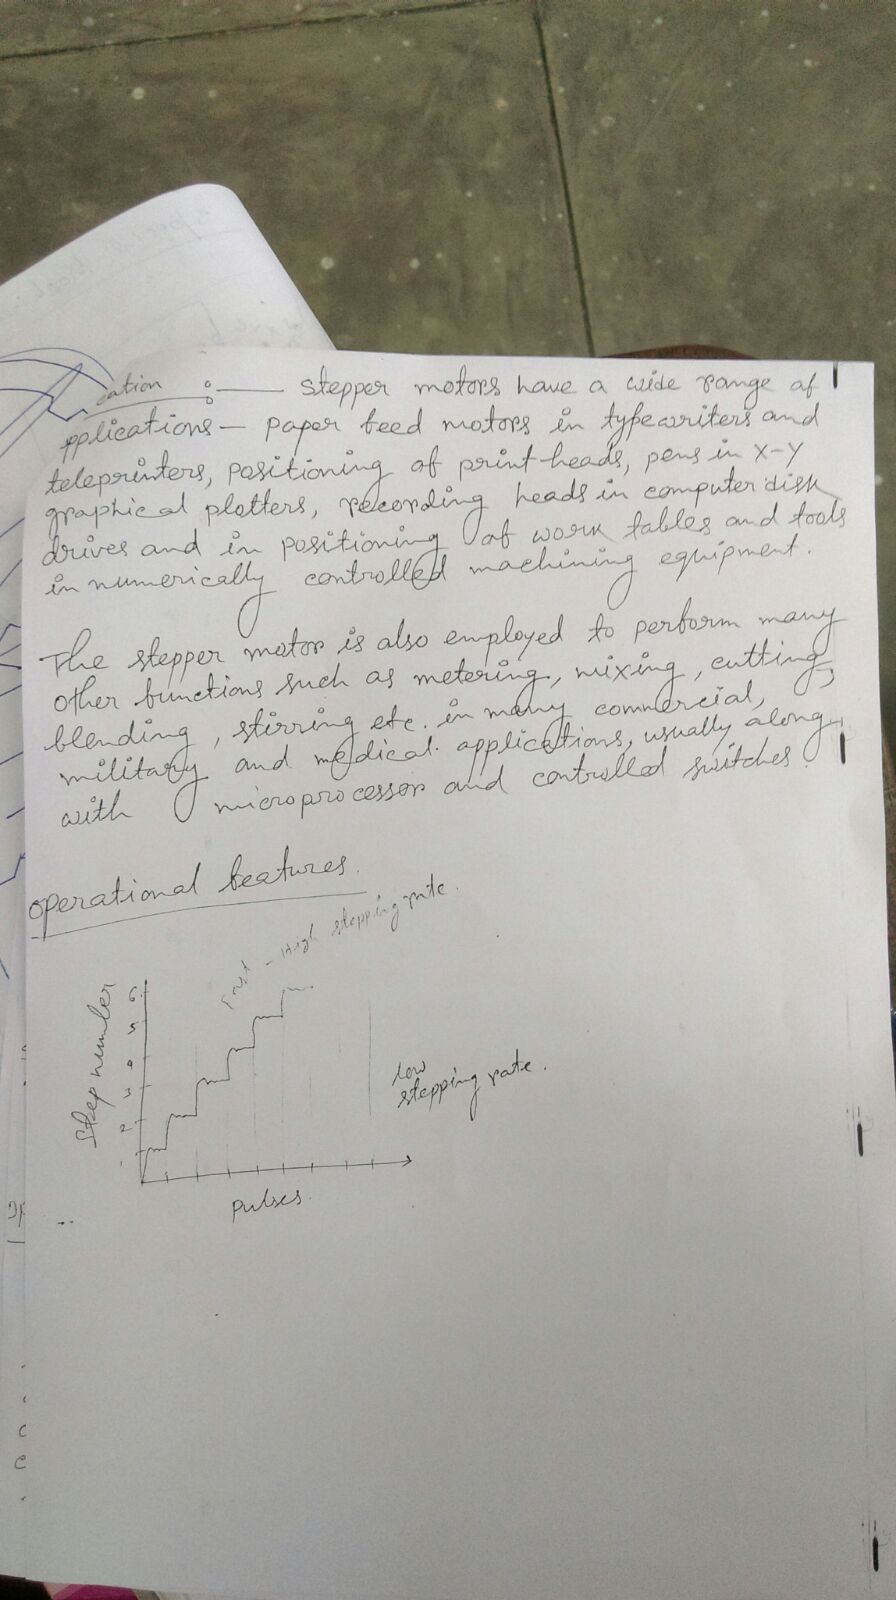 cation :— stepper motors have a wide range of
pplications — paper feed motors in typewriters and
teleprinters, positioning of print heads, pens in x-y
graphical plotters, recording heads in computer disk
drives and in positioning of work tables and tools
in numerically controlled machining equipment.
The stepper motor is also employed to perform many
other functions such as metering, mixing, cutting,
blending, stirring etc. in many commercial,
military and medical applications, usually along
with microprocessor and controlled switches.
operational features.
Fast - High stepping rate.
Step number
6
5
4
3
2
1
low
stepping rate.
pulses.